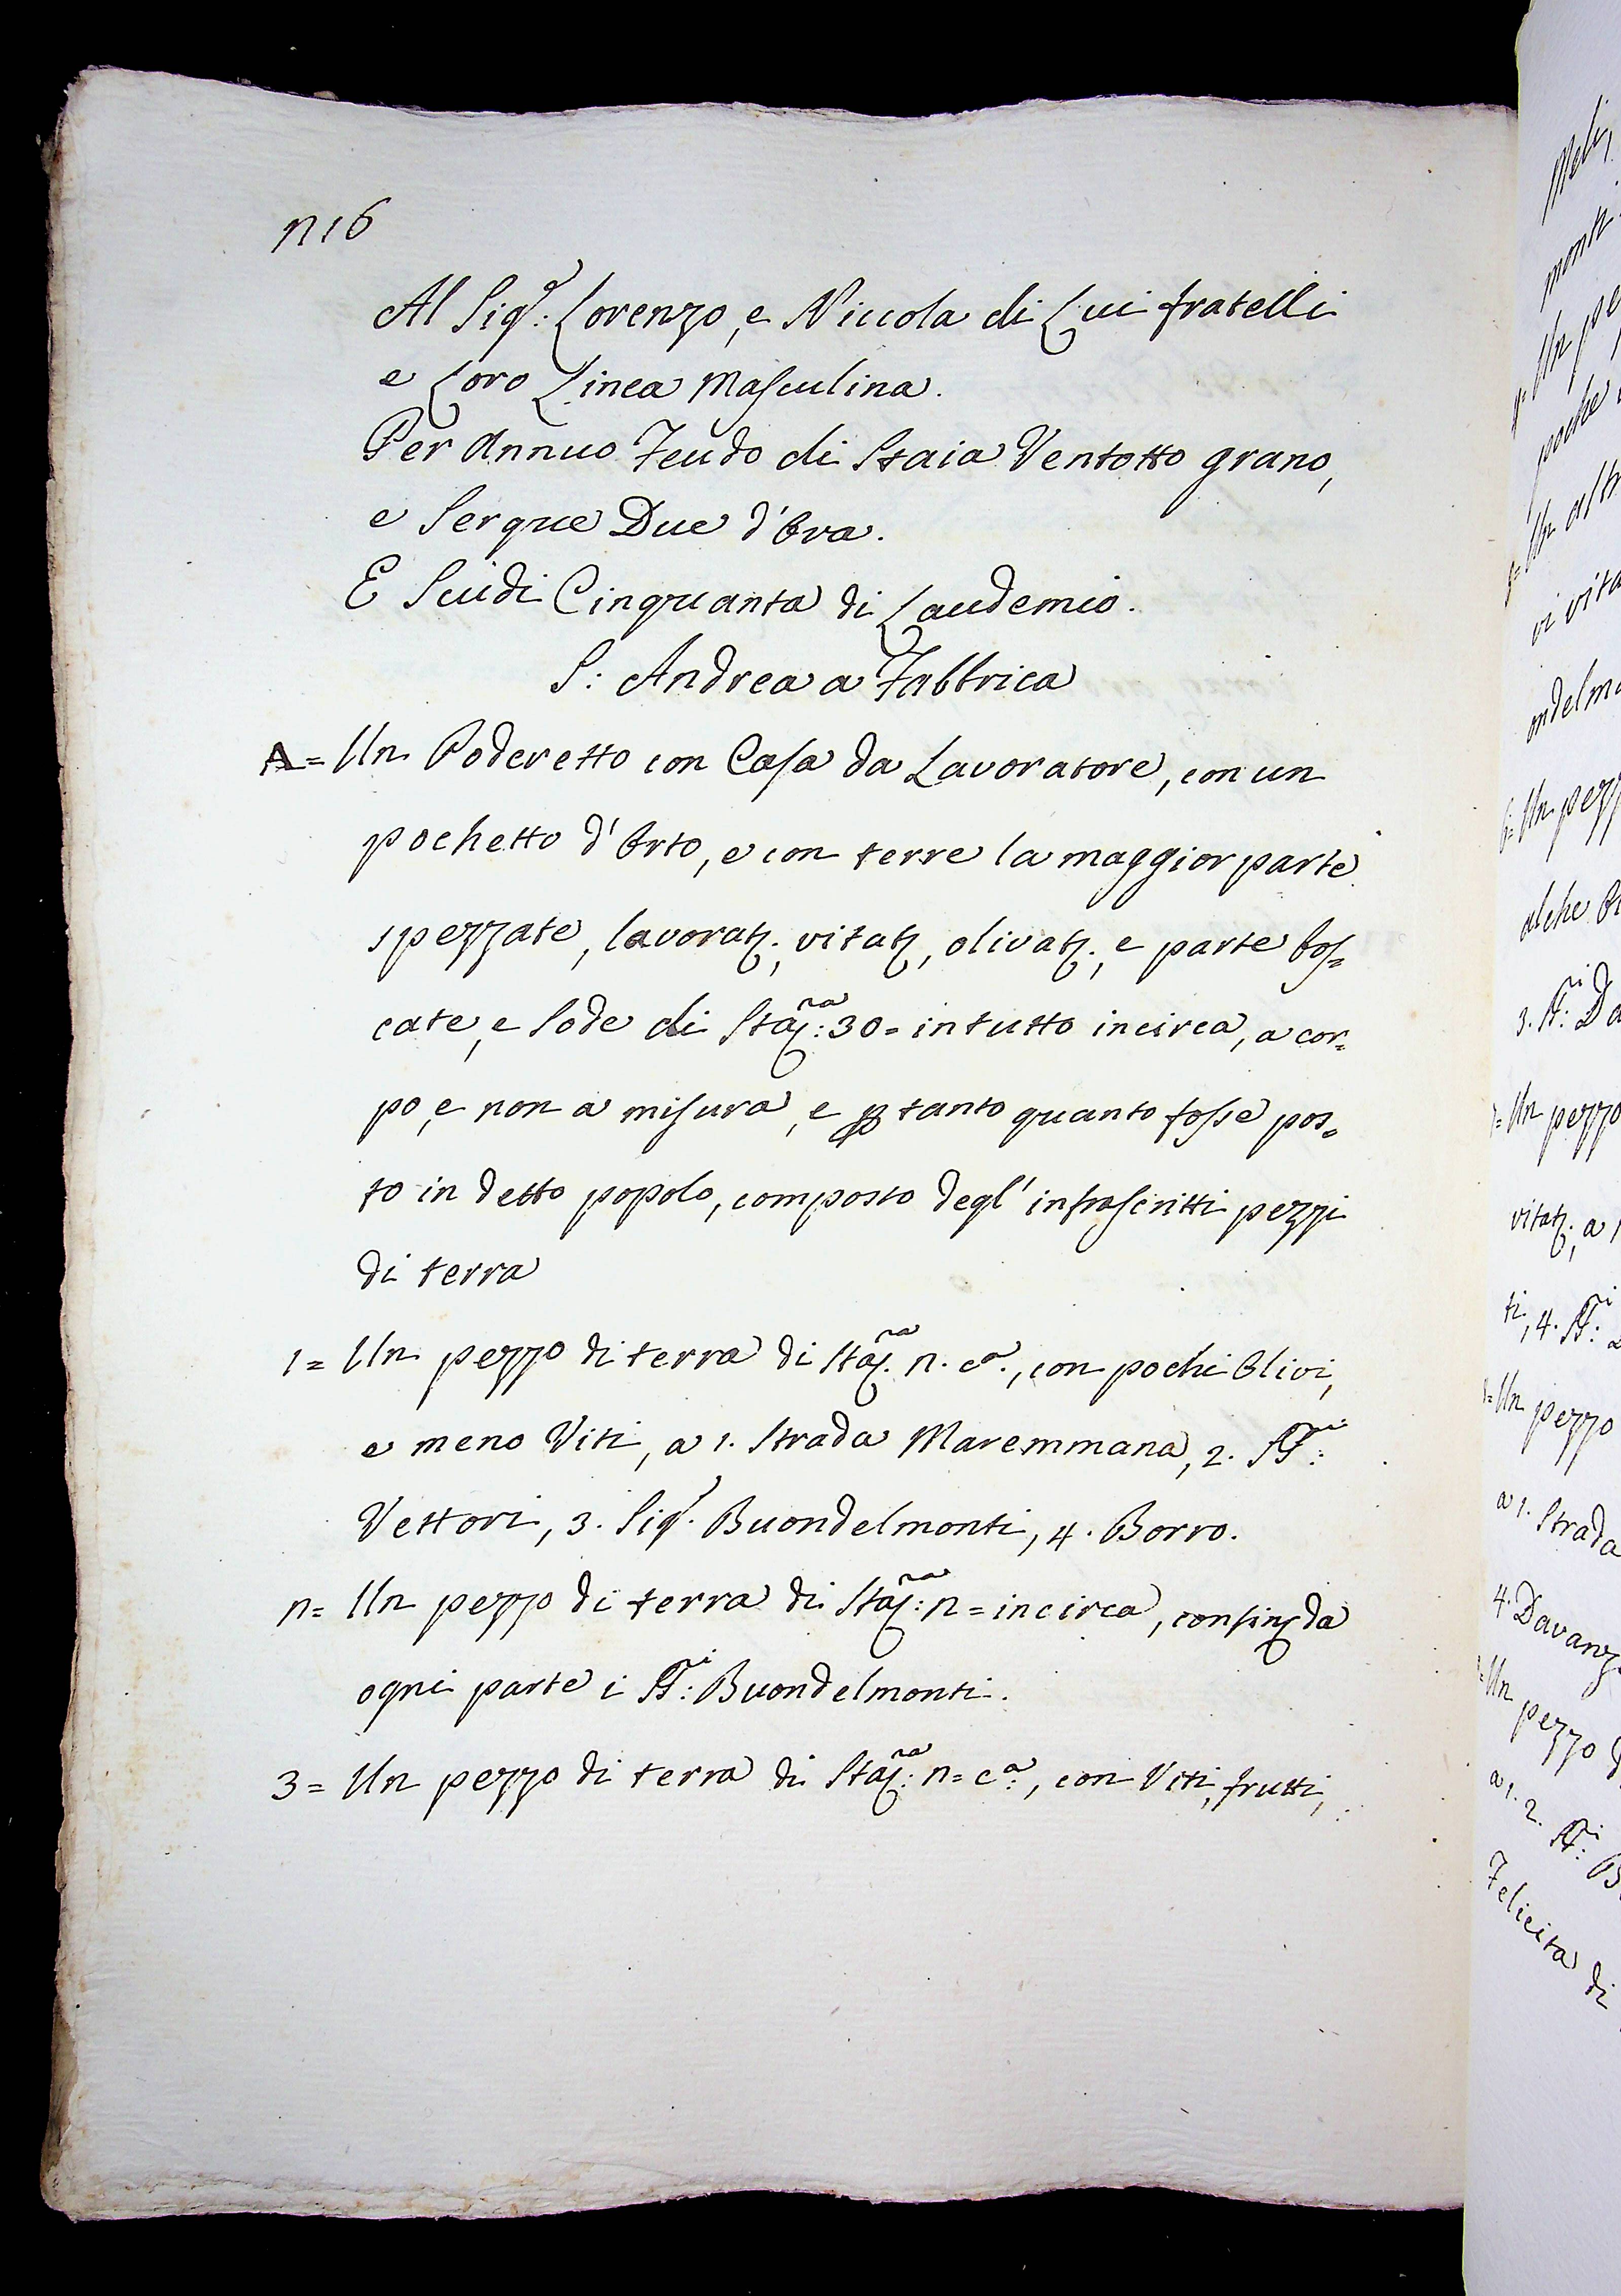 216
Al Sigr: Lorenzo, e Niccola di Lui fratelli
e Loro Linea Masculina.
Per Annuo Feudo di Staia Ventotto grano,
e Serque Due d'Ova.
E Scudi Cinquanta di Laudemio.
S: Andrea a Fabbrica
A= Un Poderetto con Casa da Lavoratore, con un
pochetto d'Orto, e con terre la maggior parte
spezzate, lavorat:, vitat:, olivat:, e parte bos=
cate, e sode di Staj:ra 30= in tutto incirca, a cor=
po, e non a misura, e p tanto quanto fosse pos=
to in detto popolo, composto degl' infrascritti pezzi
di terra
1= Un pezzo di terra di Staj:ra 2. ca., con pochi Olivi,
e meno Viti, a 1. Strada Maremmana, 2. SSri:
Vettori, 3. Sigr. Buondelmonti, 4. Borro.
2= Un pezzo di terra di Staj:ra 2= incirca, confin: da
ogni parte i SSri: Buondelmonti.
3= Un pezzo di terra di Staj:ra 2= ca:, con Viti, frutti,
Meli,
monti
Un pe
poche
Un altr
vi vita
ondelmo
Un pezz
alche
3. SSri: Da
Un pezzo
vitat:, a 1
ti, 4. SSri:
Un pezzo
a 1. Strada
4. Davanz
Un pezzo
a 1. 2. SSri: B
Felicita di